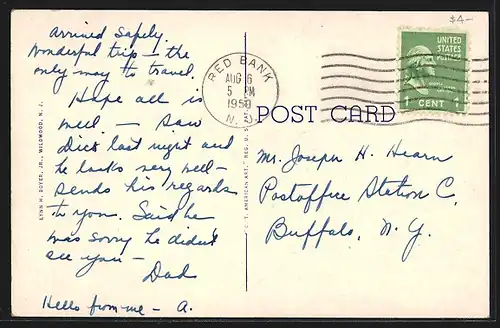 $4-
Arrived safely.
Wonderful trip - the
only way to travel.
Hope all is
well - Saw
Dick last night and
he looks very well -
sends his regards
to you. Said he
was sorry he didn't
see you -
Dad
Hello from me - A.
LYNN H. BOYER, JR., WILDWOOD, N. J.
RED BANK
AUG 6
5 PM
1950
N. J.
UNITED
STATES
POSTAGE
1 CENT 1
POST CARD
C. T. AMERICAN ART
Mr. Joseph H. Hearn
Postoffice Station C,
Buffalo, N. Y.